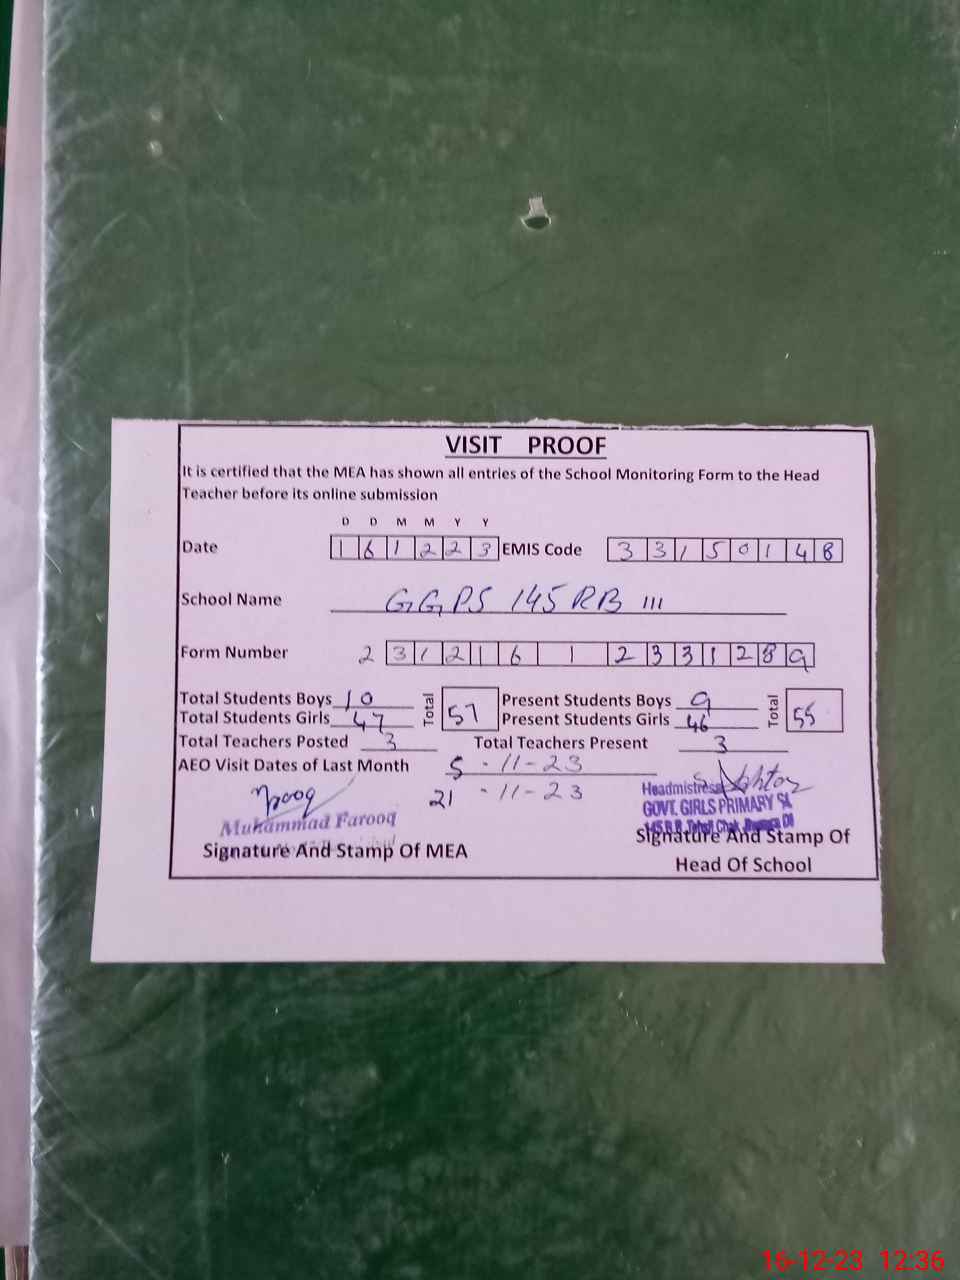 VISIT PROOF
It is certified that the MEA has shown all entries of the School Monitoring Form to the Head
Teacher before its online submission
D D M M Y Y
Date 1 6 1 2 2 3 EMIS Code 3 3 1 5 0 1 4 8
School Name GGPS 145 RB III
Form Number 2 3 1 2 1 6 1 2 3 3 1 2 8 9
Total Students Boys 10 Total 57 Present Students Boys 9 Total 55
Total Students Girls 47 Present Students Girls 46
Total Teachers Posted 3 Total Teachers Present 3
AEO Visit Dates of Last Month 5 - 11 - 23
21 - 11 - 23
Farooq
Muhammad Farooq
Signature And Stamp Of MEA
Headmistress
GOVT. GIRLS PRIMARY
145 R.B.
Signature And Stamp Of
Head Of School
16-12-23 12:36